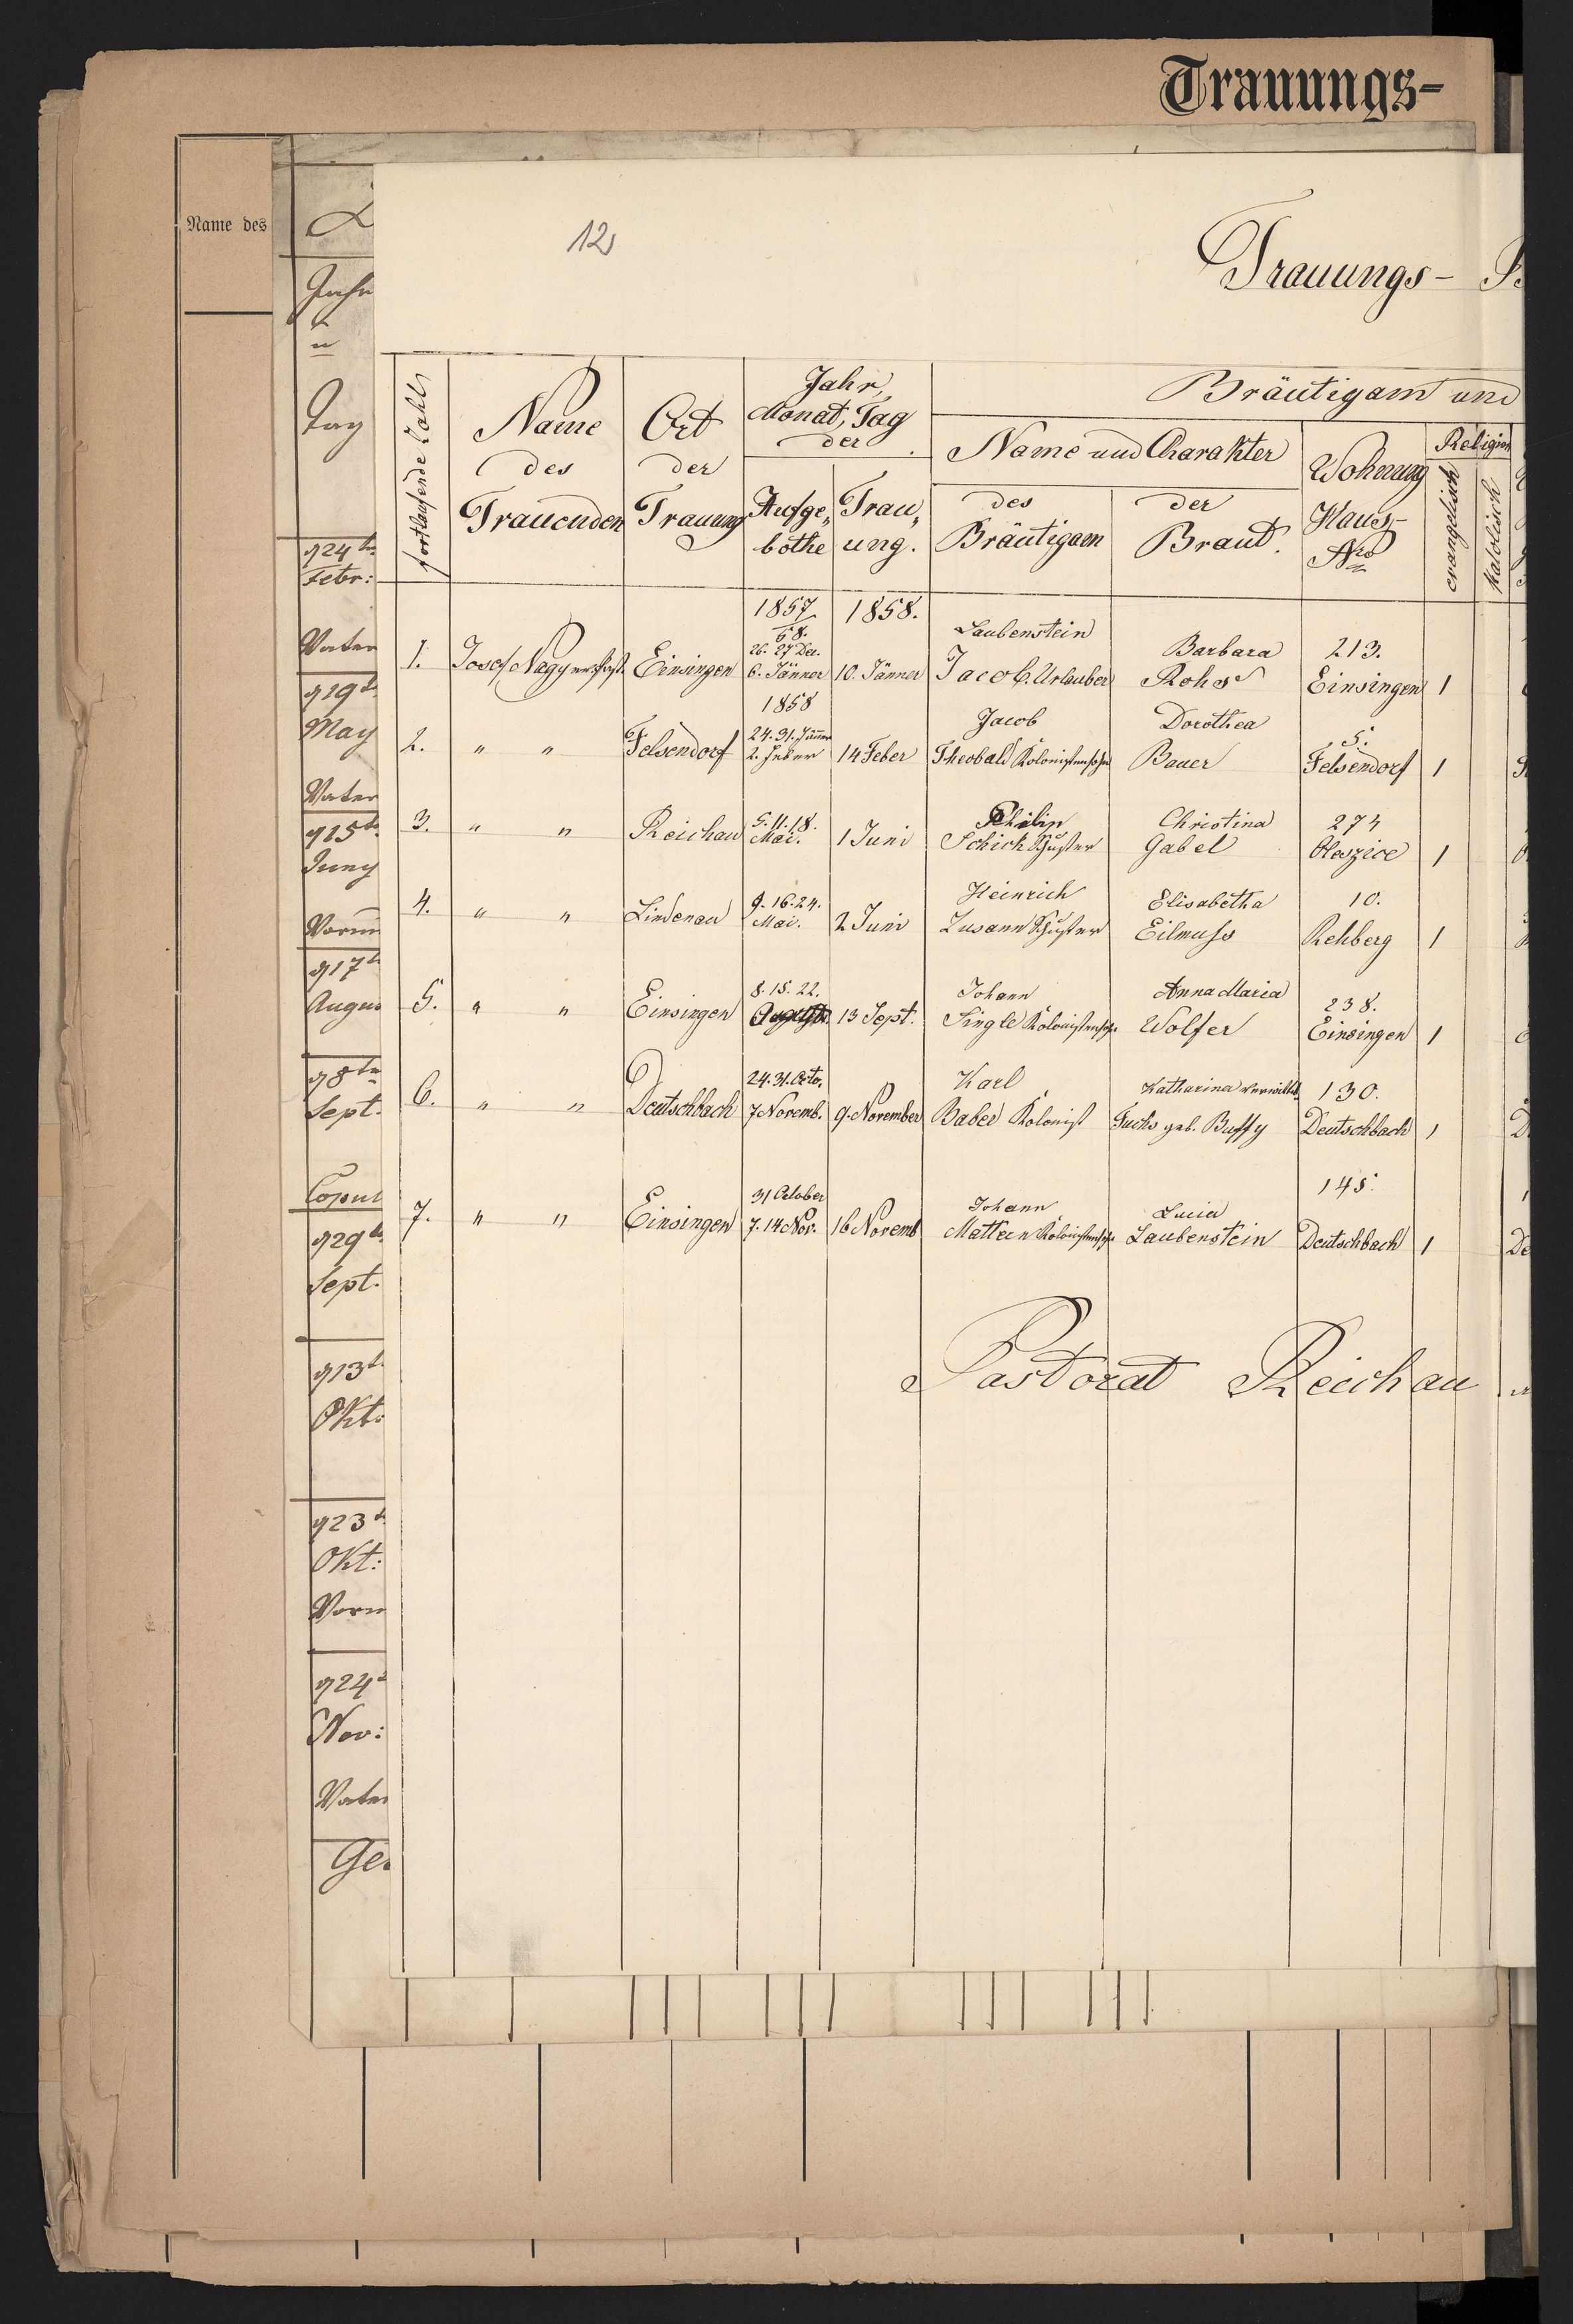 Trauungs-
Name des
12
Trauungs-
Jahr
u
Tag
fortlaufende Zahl
Name
des
Trauenden
Ort
der
Trauung
Jahr,
Monat, Tag
der
Aufge„
bothe
Trau„
ung.
Bräutigam und
Name und Charakter
des
Bräutigam
der
Braut.
Wohnung
Haus-
Nro
Religion
evangelisch
katolisch
1857
58.
26. 27 Dec.
6. Jänner
1858.
1. Josef Nagy Einsingen 10. Jänner
Laubenstein
Jacob. Urlauber
Barbara
Rohs
213.
Einsingen 1
1858
2. " " Felsendorf
24. 31. Jänner
2. Feber
14 Feber
Jacob
Theobald Kolonistensohn
Dorothea
Bauer
5.
Felsendorf 1
3. " " Reichau
5. 11. 18.
Mai.
1 Juni
Philip
Schick Schuster
Christina
Gabel
274
Oleszice 1
4. " " Lindenau
9. 16. 24.
Mai.
2 Juni
Heinrich
Zusann Schuster
Elisabetha
Eilmuss
10.
Rehberg 1
5. " " Einsingen
8. 15. 22.
13 Sept.
Johann
Single Kolonistens.
Anna Maria
Wolfer
238.
Einsingen 1
6. " " Deutschbach
24. 31. Octo.
7 Novemb.
9. November
Karl
Baber Kolonist
Katharina verwittib.
Fuchs geb. Buffy
130.
Deutschbach 1
7. " " Einsingen
31 October
7. 14 Nov.
16 Novemb
Johann
Mattern Kolonistens.
Lucia
Laubenstein
145.
Deutschbach 1
Pastorat Reichau
Febr:
Vater
May
Vater
Juny
Augus
Sept.
Copul
Sept.
Okt:
Okt:
Vorm
Nov:
Vater